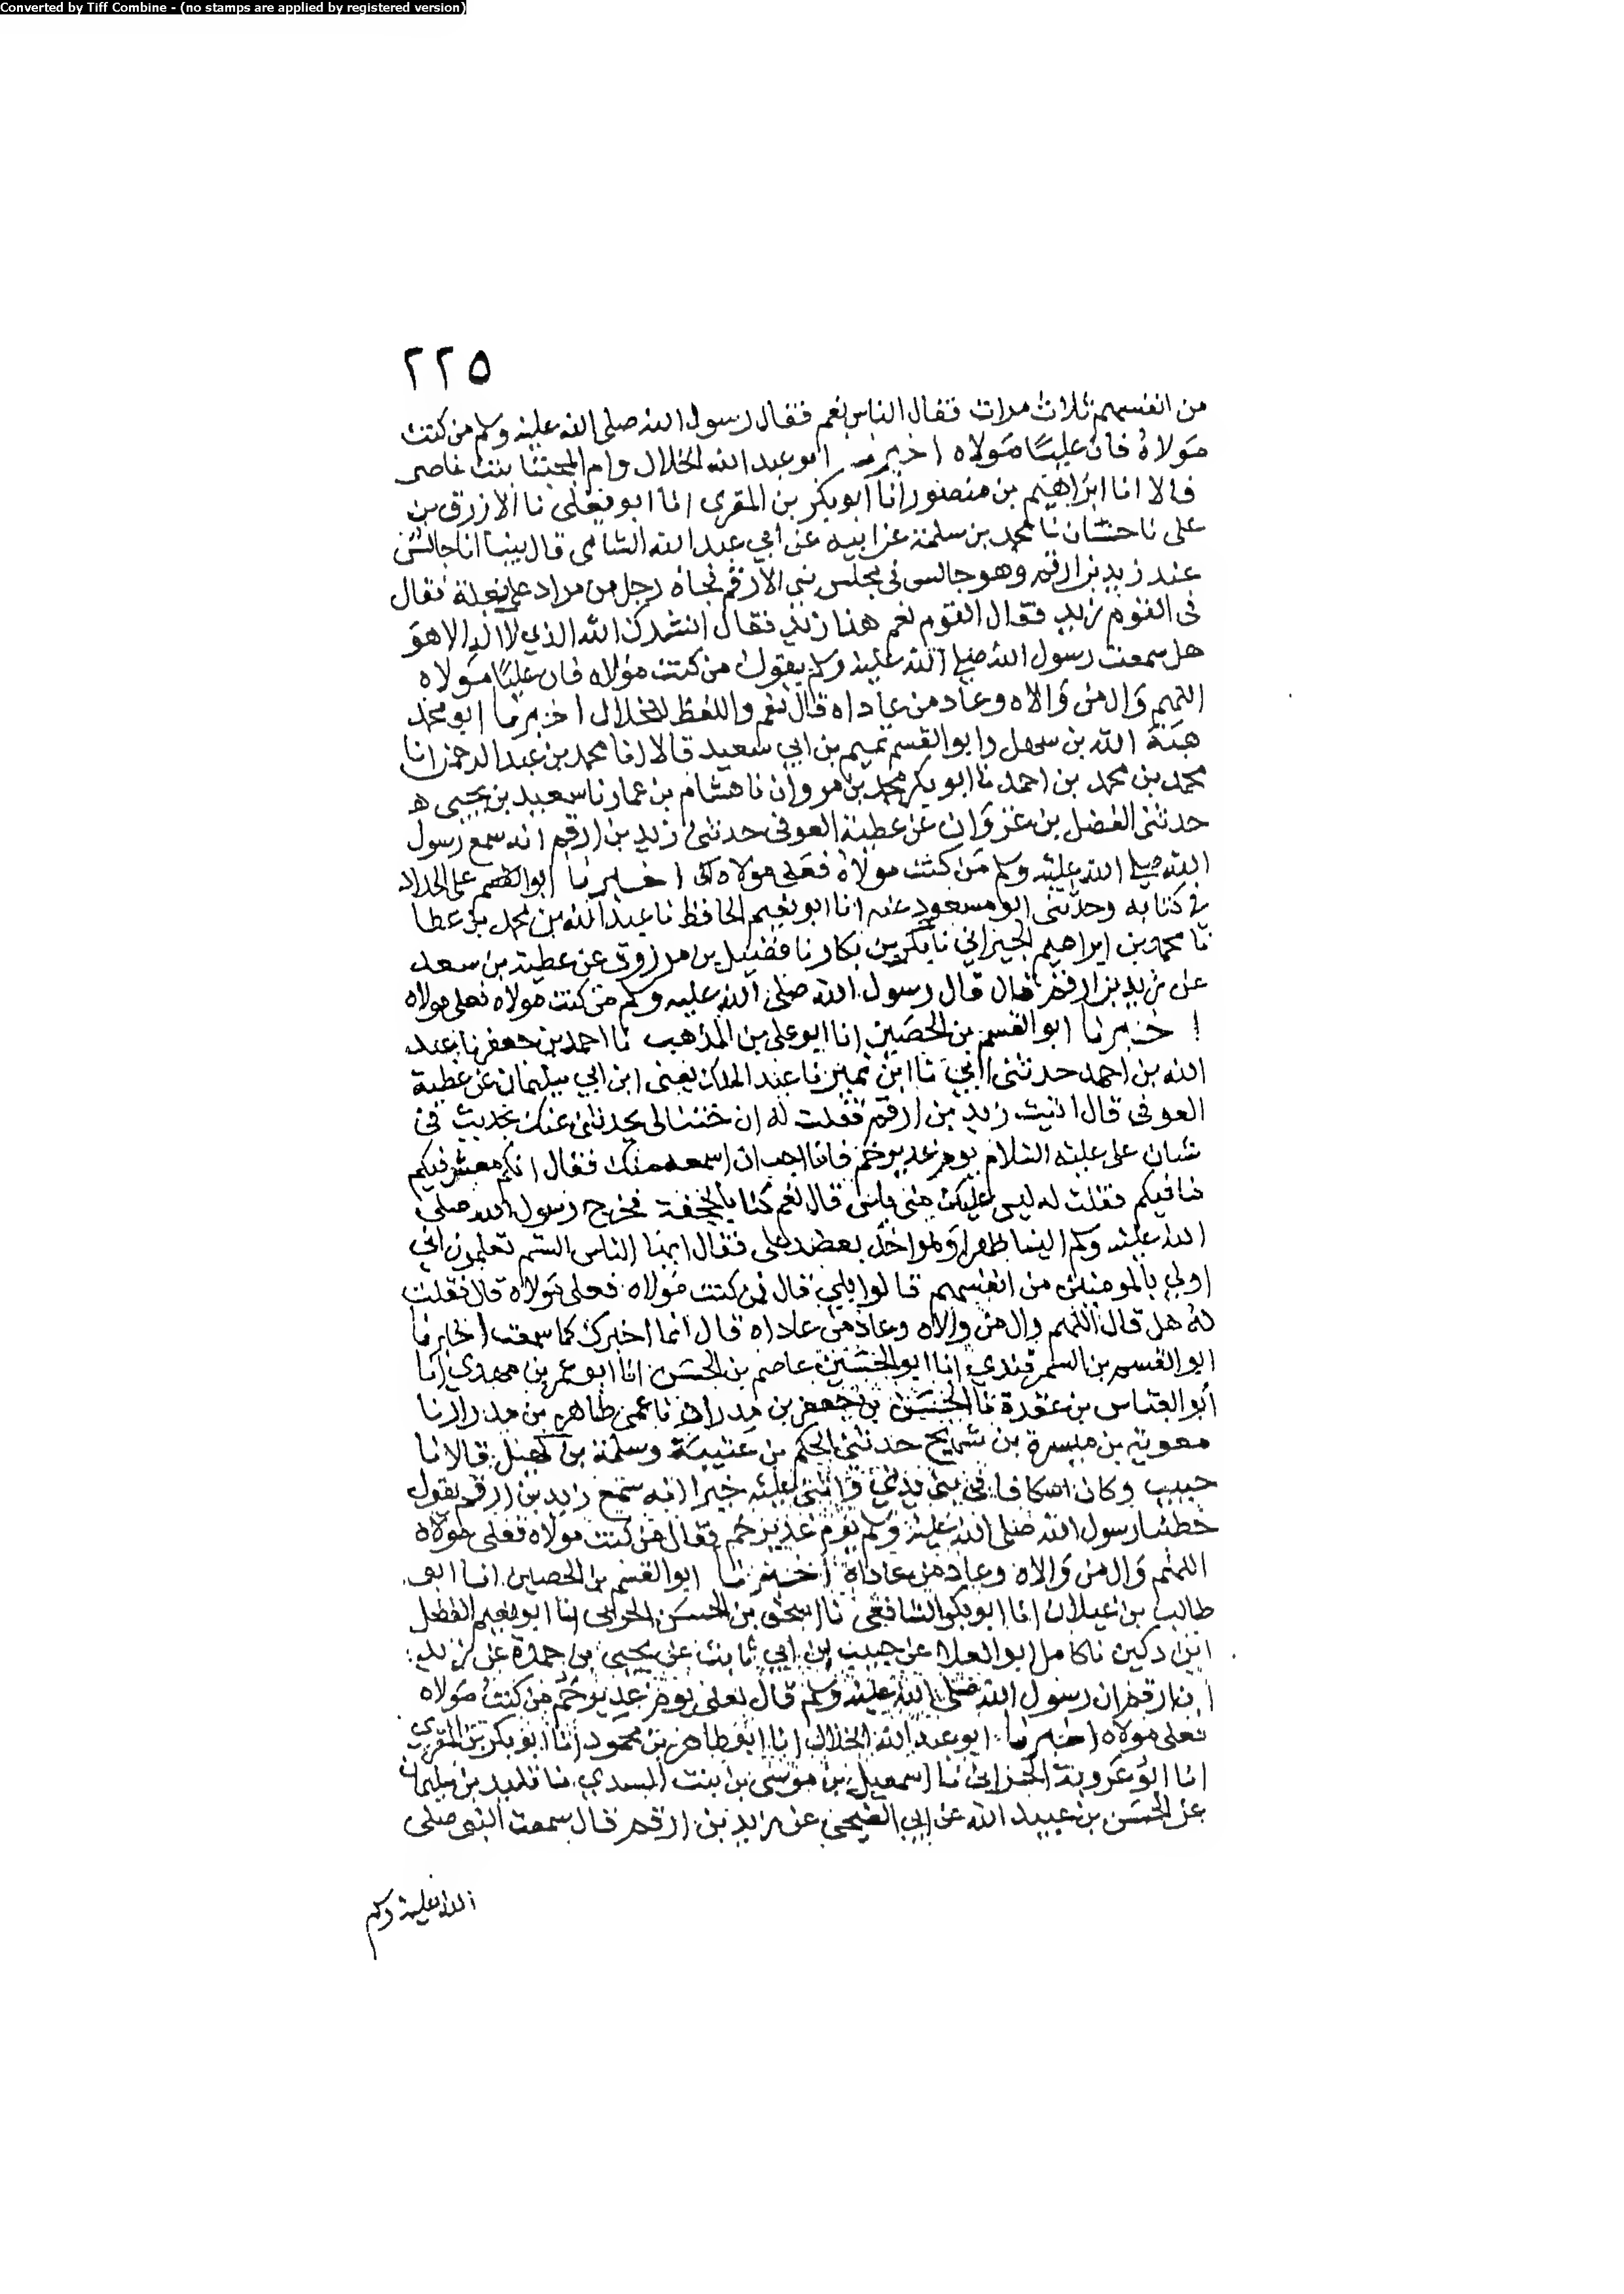 Converted by Tiff Combine - (no stamps are applied by registered version)
٢٢٥
من انفسهم ثلاث مرات فقال الناس نعم فقال رسول الله صلى الله عليه وسلم من كنت
مولاه فان عليا مولاه اخبرنا ابو عبد الله الخلال وام المجتبا بنت ناصر
قالا انا ابراهيم بن منصور انا ابو بكر بن المقرى انا ابو يعلى نا الازرق بن
على نا حسان نا محمد بن سلمة عن ابيه عن ابي عبد الله الشامى قال بينا انا جالس
عند زيد بن ارقم وهو جالس فى مجلس بنى الارقم فجاه رجل من مراد على بغلة فقال
فى القوم زيد فقال القوم نعم هذا زيد فقال انشدك الله الذي لا اله الا هو
هل سمعت رسول الله صلى الله عليه وسلم يقول من كنت مولاه فان عليا مولاه
اللهم وال من والاه وعاد من عاداه قال نعم واللفظ للخلال اخبرنا ابو محمد
هبة الله بن سهل وابو القسم تميم بن ابي سعيد قالا انا محمد بن عبد الرحمن انا
محمد بن محمد بن احمد نا ابو بكر محمد بن مروان نا هشام بن عمار نا سعيد بن يحيى
حدثنى الفضل بن غزوان عن عطية العوفى حدثنى زيد بن ارقم انه سمع رسول
الله صلى الله عليه وسلم من كنت مولاه فعلى مولاه اخبرنا ابو على الحداد
فى كتابه وحدثنى ابو مسعود عنه انا ابو نعيم الحافظ نا عبد الله بن محمد بن عطا
نا محمد بن ابراهيم الجيزانى نا بكر بن بكار نا فضيل بن مرزوق عن عطية بن سعد
عن زيد بن ارقم قال قال رسول الله صلى الله عليه وسلم من كنت مولاه فعلى مولاه
اخبرنا ابو القسم بن الحصين انا ابو على بن المذهب نا احمد بن جعفر نا عبد
الله بن احمد حدثنى ابي نا ابن نمير نا عبد الملك يعنى ابن ابي سليمان عن عطية
العوفى قال اتيت زيد بن ارقم فقلت له ان ختنا لى يحدثنى عنك بحديث فى
شان على عليه السلام يوم غدير خم فانا احب ان اسمعه منك فقال انكم معشر فيكم
ما فيكم فقلت له ليس عليك منى باس قال نعم كنا بالجحفة فخرج رسول الله صلى
الله عليه وسلم الينا ظهرا وهو اخذ بعضد على فقال ايها الناس الستم تعلمون اني
اولى بالمومنين من انفسهم قالوا بلى قال فمن كنت مولاه فعلى مولاه قال فقلت
له هل قال اللهم وال من والاه وعاد من عاداه قال انما اخبرك كما سمعت اخبرنا
ابو القسم بن السمرقندي انا ابو الحسين عاصم بن الحسن انا ابو عمر بن مهدي انا
أبو العباس بن عقدة نا الحسن بن جعفر بن مدرار نا عمى طاهر بن مدرار نا
معوية بن ميسرة بن شريح حدثنى الحكم بن عتيبة وسلمة بن كهيل قالا نا
حبيب وكان اسكافا فى بنى بدي واثنى عليه خيرا انه سمع زيد بن ارقم يقول
خطبنا رسول الله صلى الله عليه وسلم يوم غدير خم فقال من كنت مولاه فعلى مولاه
اللهم وال من والاه وعاد من عاداه اخبرنا ابو القسم بن الحصين انا ابو
طالب بن غيلان انا ابو بكر الشافعى نا اسحق بن الحسن الحربى نا ابو نعيم الفضل
ابن دكين نا كامل ابو العلا عن حبيب بن ابي ثابت عن يحيى بن جعدة عن زيد
ابن ارقم ان رسول الله صلى الله عليه وسلم قال يعنى يوم غدير خم من كنت مولاه
فعلى مولاه اخبرنا ابو عبد الله الخلال انا ابو طاهر بن محمود انا ابو بكر بن المقرى
انا ابو عروبة الحرانى نا اسمعيل بن موسى بن بنت السدي نا تليد بن سليمان
عن الحسن بن عبيد الله عن ابي الضحى عن زيد بن ارقم قال سمعت النبى صلى
الله عليه وسلم